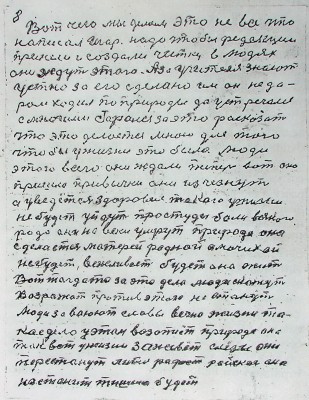 8
Вот чего мы делаем это не все что
написал надо чтобы редакции
пришли и создали честь в людях
они ждут этого. Я за учителя знают
устно за его сделано им он не да
ром ходил по природе да встречался
с многими за это рассказать
что это делается мною для того
чтобы у жизни это было. люди
этого всего они ждали теперь вот оно
пришло привычки они исчезнут
а введется здоровье такого у жизни
не будет уйдут простуды боли всякого
рода они на веки умрут природа она
сделается матерей родной а мачихай
не будет, вежливость будет она
Вот тогда то за это дело люди скажут
Возражать против этого не станут
люди завоюют славы вечно жизни та
кое дело у этан возопиет природа она
так вот у жизни заживет слезы они
перестанут литься радость райская она
настанит тишина будет